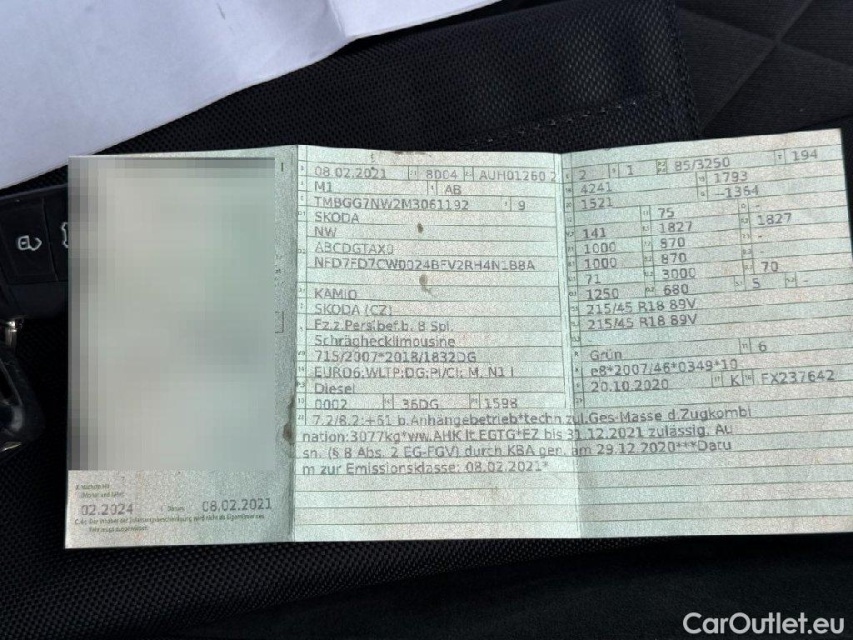 08.02.2021 8004 AUH01260 2
M1 AB
TMBGG7NW2M3061192 9
SKODA
NW
ABCDGTAX0
NFD7FD7CW0024BFV2RH4N1B8A
KAMIQ
SKODA (CZ)
Fz.z.Pers.bef.b. 8 Spl.
Schräghecklimousine
715/2007*2018/1832DG
EURO6;WLTP;DG;PI/CI; M, N1 I
Diesel
0002 36DG 1598
2 1 85/3250 194
4241 1793
1521 -1364
75 -
141 1827 1827
1000 870 -
1000 870 -
71 3000 70
1250 680 5 -
215/45 R18 89V
215/45 R18 89V
Grün 6
e8*2007/46*0349*10
20.10.2020 K FX237642
7.2/8.2:+61 b.Anhängebetrieb*techn.zul.Ges-Masse d.Zugkombi
nation:3077kg*ww.AHK lt.EGTG*EZ bis 31.12.2021 zulässig, Au
sn. (§ 8 Abs. 2 EG-FGV) durch KBA gen. am 29.12.2020***Datu
m zur Emissionsklasse: 08.02.2021*
02.2024 08.02.2021
CarOutlet.eu